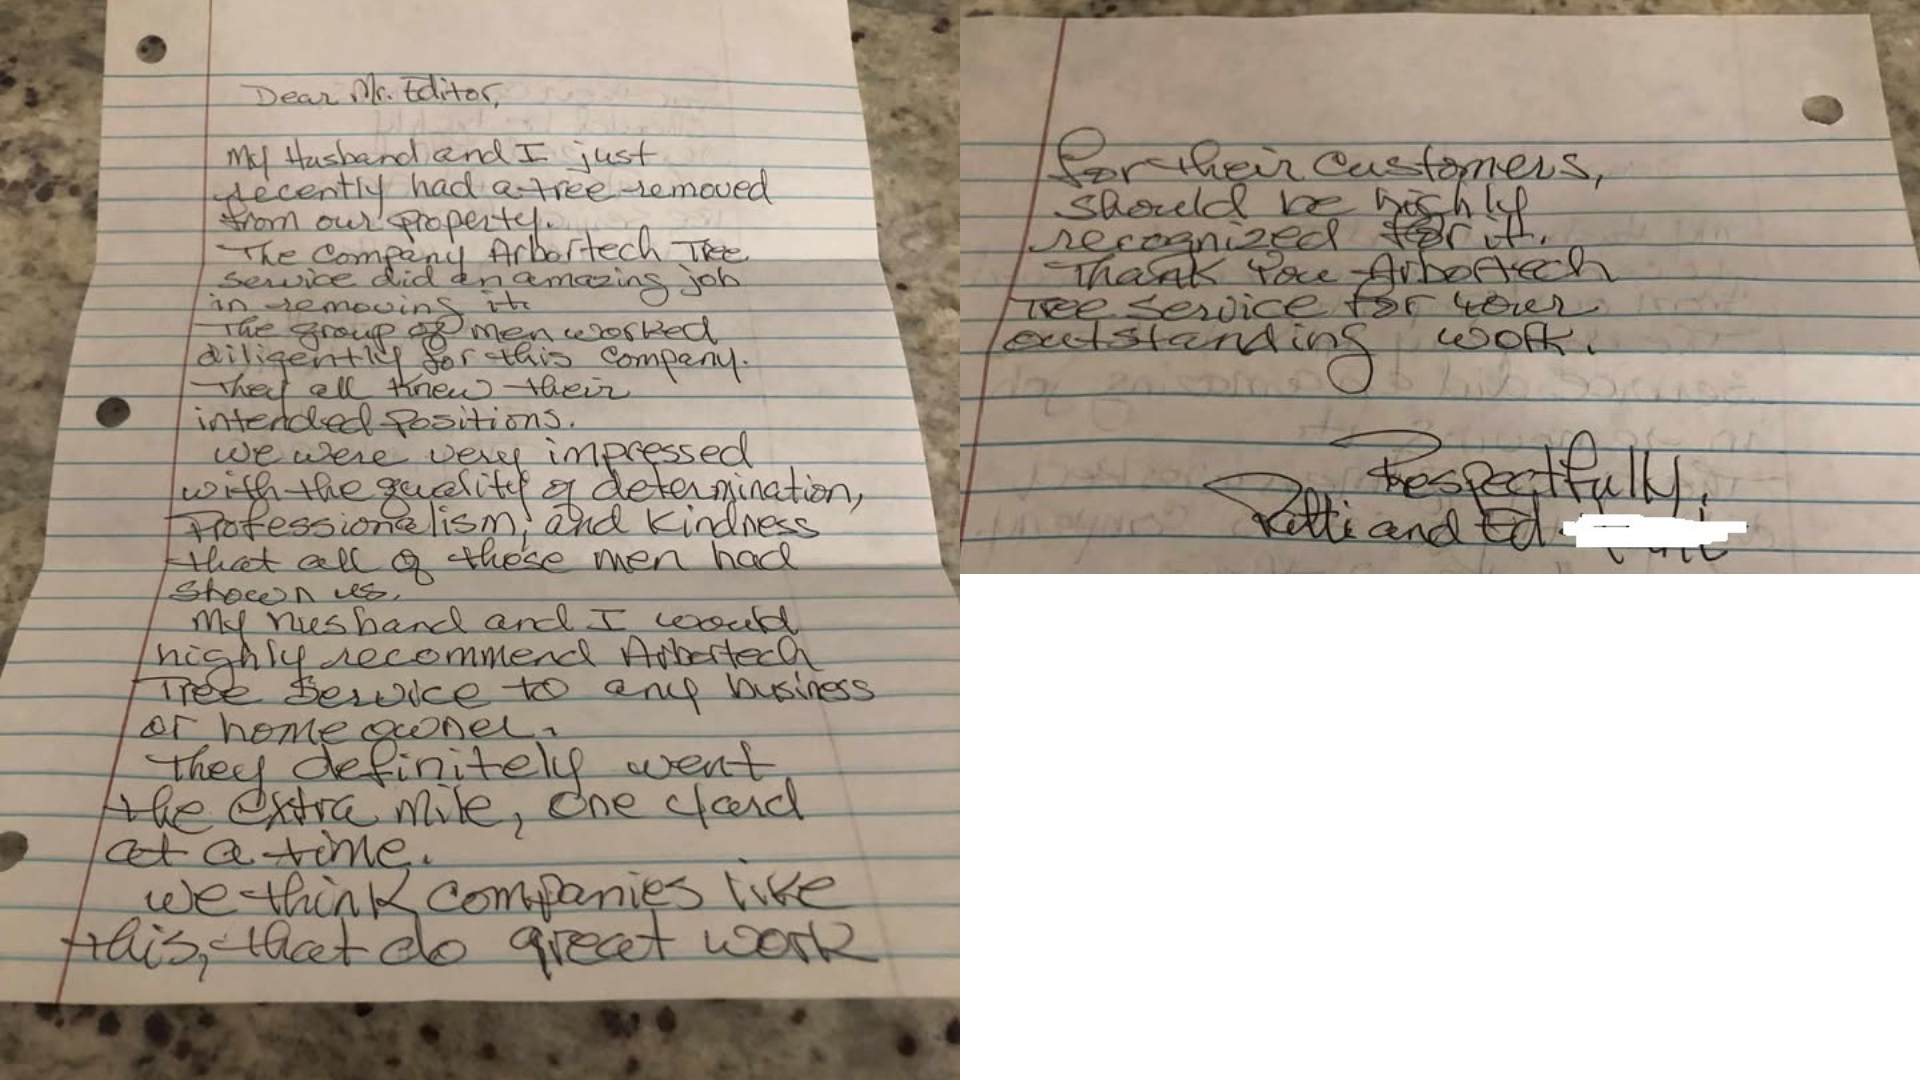 Dear Mr. Editor,
My Husband and I just
recently had a tree removed
from our property.
The Company Arbortech Tree
service did an amazing job
in removing it.
The group of men worked
diligently for this company.
They all knew their
intended positions.
We were very impressed
with the quality of determination,
Professionalism, and kindness
that all of these men had
shown us.
My husband and I would
highly recommend Arbortech
Tree Service to any business
or home owner.
They definitely went
the extra mile, one yard
at a time.
We think companies like
this, that do great work
for their customers,
should be highly
recognized for it.
Thank You Arbortech
Tree Service for your
outstanding work.
Respectfully,
Patti and Ed